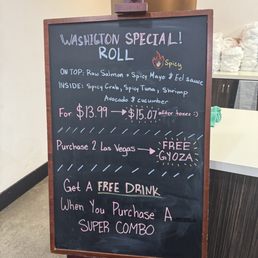 WASHIGTON SPECIAL!
ROLL
Spicy
ON TOP: Raw Salmon + Spicy Mayo & Eel sauce
INSIDE: Spicy Crab, Spicy Tuna, Shrimp
Avocado & cucumber
For $13.99 → $15.07 after taxes :)
Purchase 2 Las Vegas → FREE
GYOZA
Get A FREE DRINK
When You Purchase A
SUPER COMBO